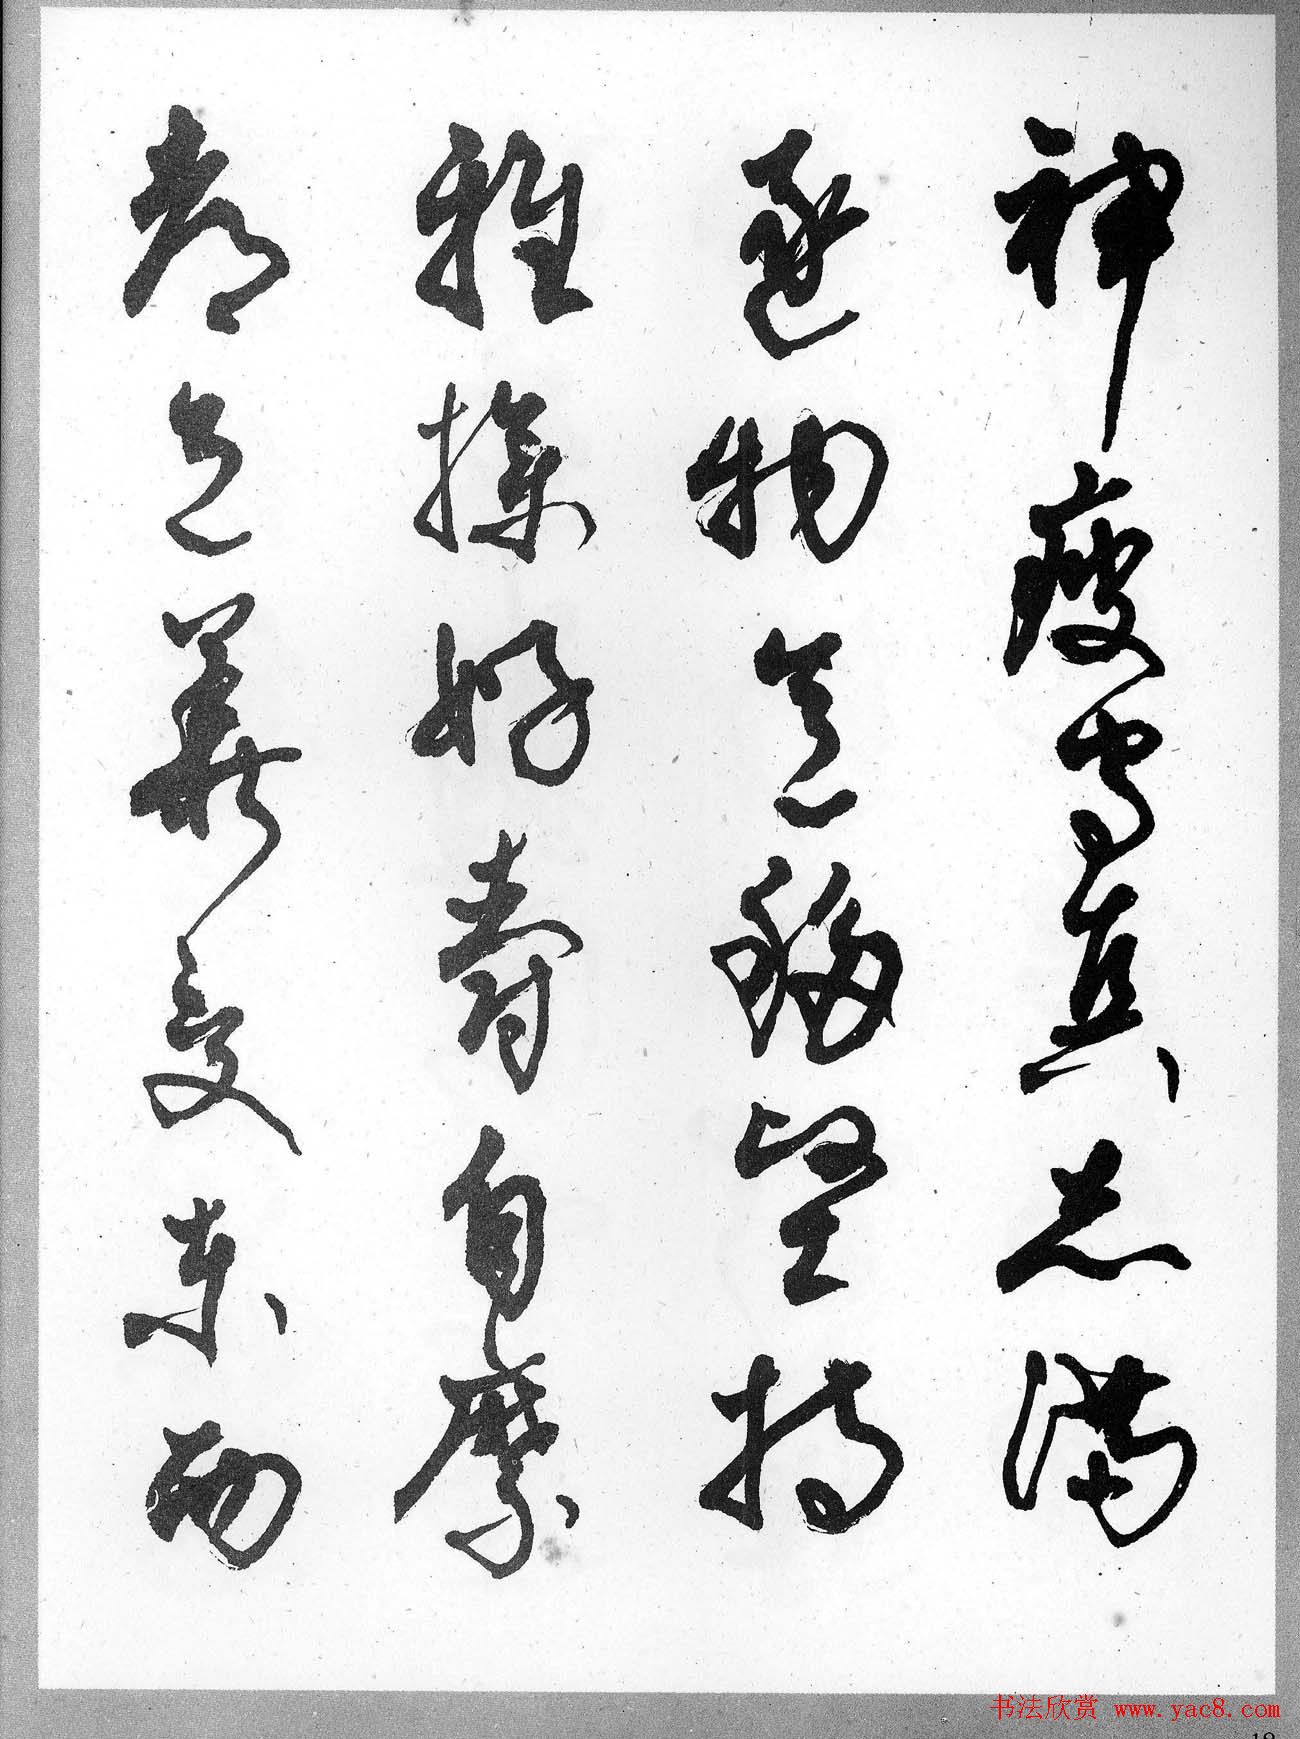 神疲守真志滿
逐物意移堅持
雅操好爵自縻
都邑華夏東西
书法欣赏 www.yac8.com